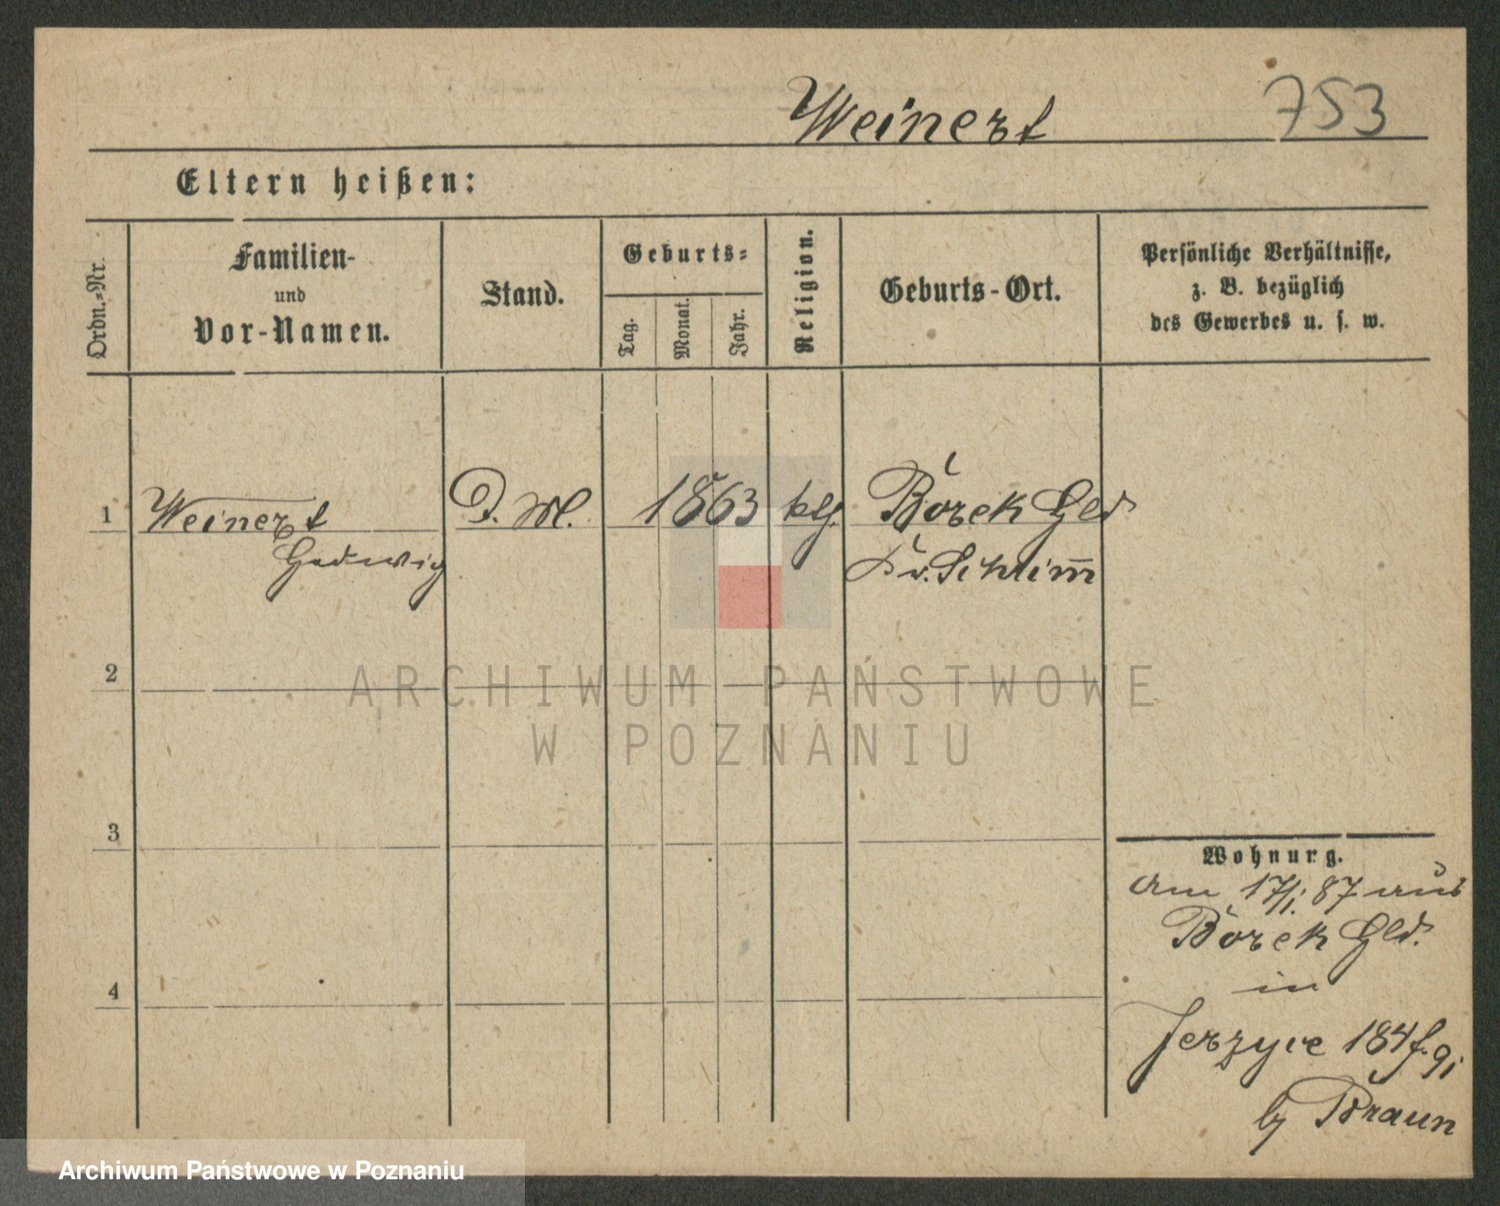 Weinert 753
Eltern heißen:
Ordn.=Nr.
Familien-
und
Vor-Namen.
Stand.
Geburts=
Tag.
Monat.
Jahr.
Religion.
Geburts-Ort.
Persönliche Verhältnisse,
z. B. bezüglich
des Gewerbes u. s. w.
1 Weinert D. M. 1863 ktg. Borek Gld
Hedwig Kr. Schrimm
2
3
4
Wohnung.
am 17/1. 87 aus
Borek Gld.
in
Jerzyce 184
by Braun
ARCHIWUM PAŃSTWOWE
W POZNANIU
Archiwum Państwowe w Poznaniu